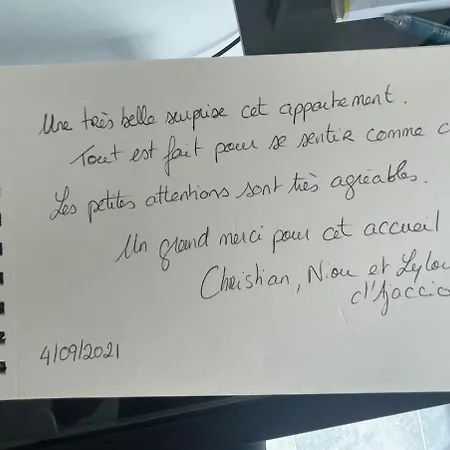 Une très belle surprise cet appartement.
Tout est fait pour se sentir comme c
Les petites attentions sont très agréables.
Un grand merci pour cet accueil
Christian, Niou et Lylou
d'Ajaccio
4/09/2021